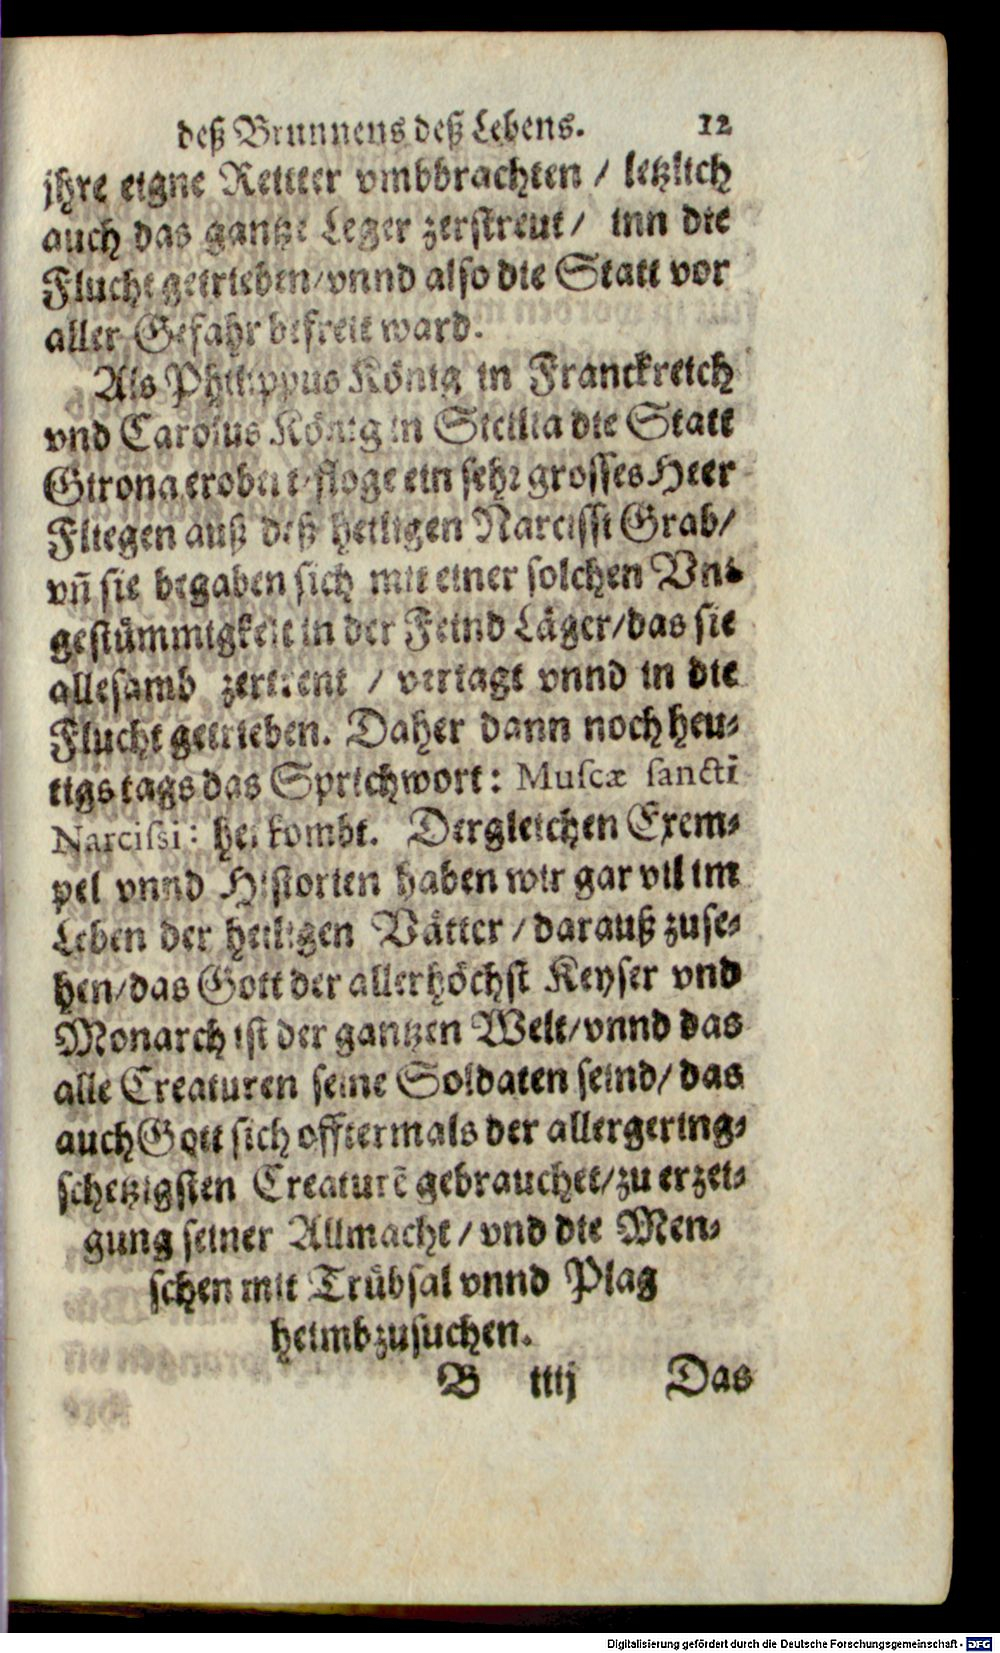 deß Brunnens deß Lebens. 12
jhre eigne Reitter vmbbrachten / letzlich
auch das gantze Leger zerstreut / inn die
Flucht getrieben / vnnd also die Statt vor
aller Gefahr befreit ward.
Als Philippus König in Franckreich
vnd Carolus König in Sicilia die Statt
Girona erobert / floge ein sehr grosses Heer
Fliegen auß deß heiligen Narcissi Grab /
vñ sie begaben sich mit einer solchen Vn-
gestümmigkeit in der Feind Läger / das sie
allesamb zertrent / veriagt vnnd in die
Flucht getrieben. Daher dann noch heu-
tigs tags das Sprichwort: Muscæ sancti
Narcissi: her kombt. Dergleichen Exem-
pel vnnd Historien haben wir gar vil im
Leben der heiligen Vätter / darauß zuse-
hen / das Gott der allerhöchst Keyser vnd
Monarch ist der gantzen Welt / vnnd das
alle Creaturen seine Soldaten seind / das
auch Gott sich offtermals der allergering-
schetzigsten Creaturē gebrauchet / zu erzei-
gung seiner Allmacht / vnd die Men-
schen mit Trübsal vnnd Plag
heimbzusuchen.
B iiij Das
Digitalisierung gefördert durch die Deutsche Forschungsgemeinschaft - DFG